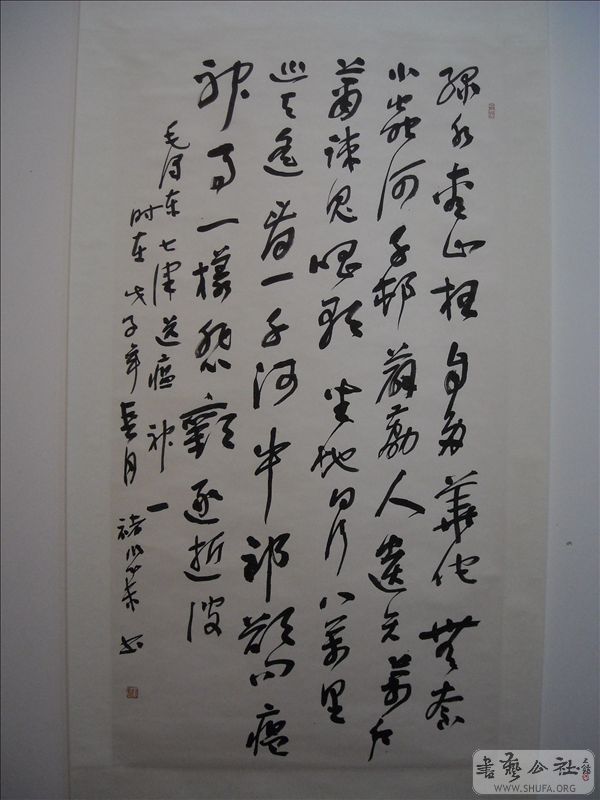 绿水青山枉自多華佗無奈
小蟲何千邨薜荔人遗矢萬户
萧疎鬼唱歌坐地日行八萬里
巡天遥看一千河牛郎欲问瘟
神事一樣悲歡逐逝波
毛泽东七律送瘟神一
时在戊子年月褚书
書藝公社
WWW.SHUFA.ORG